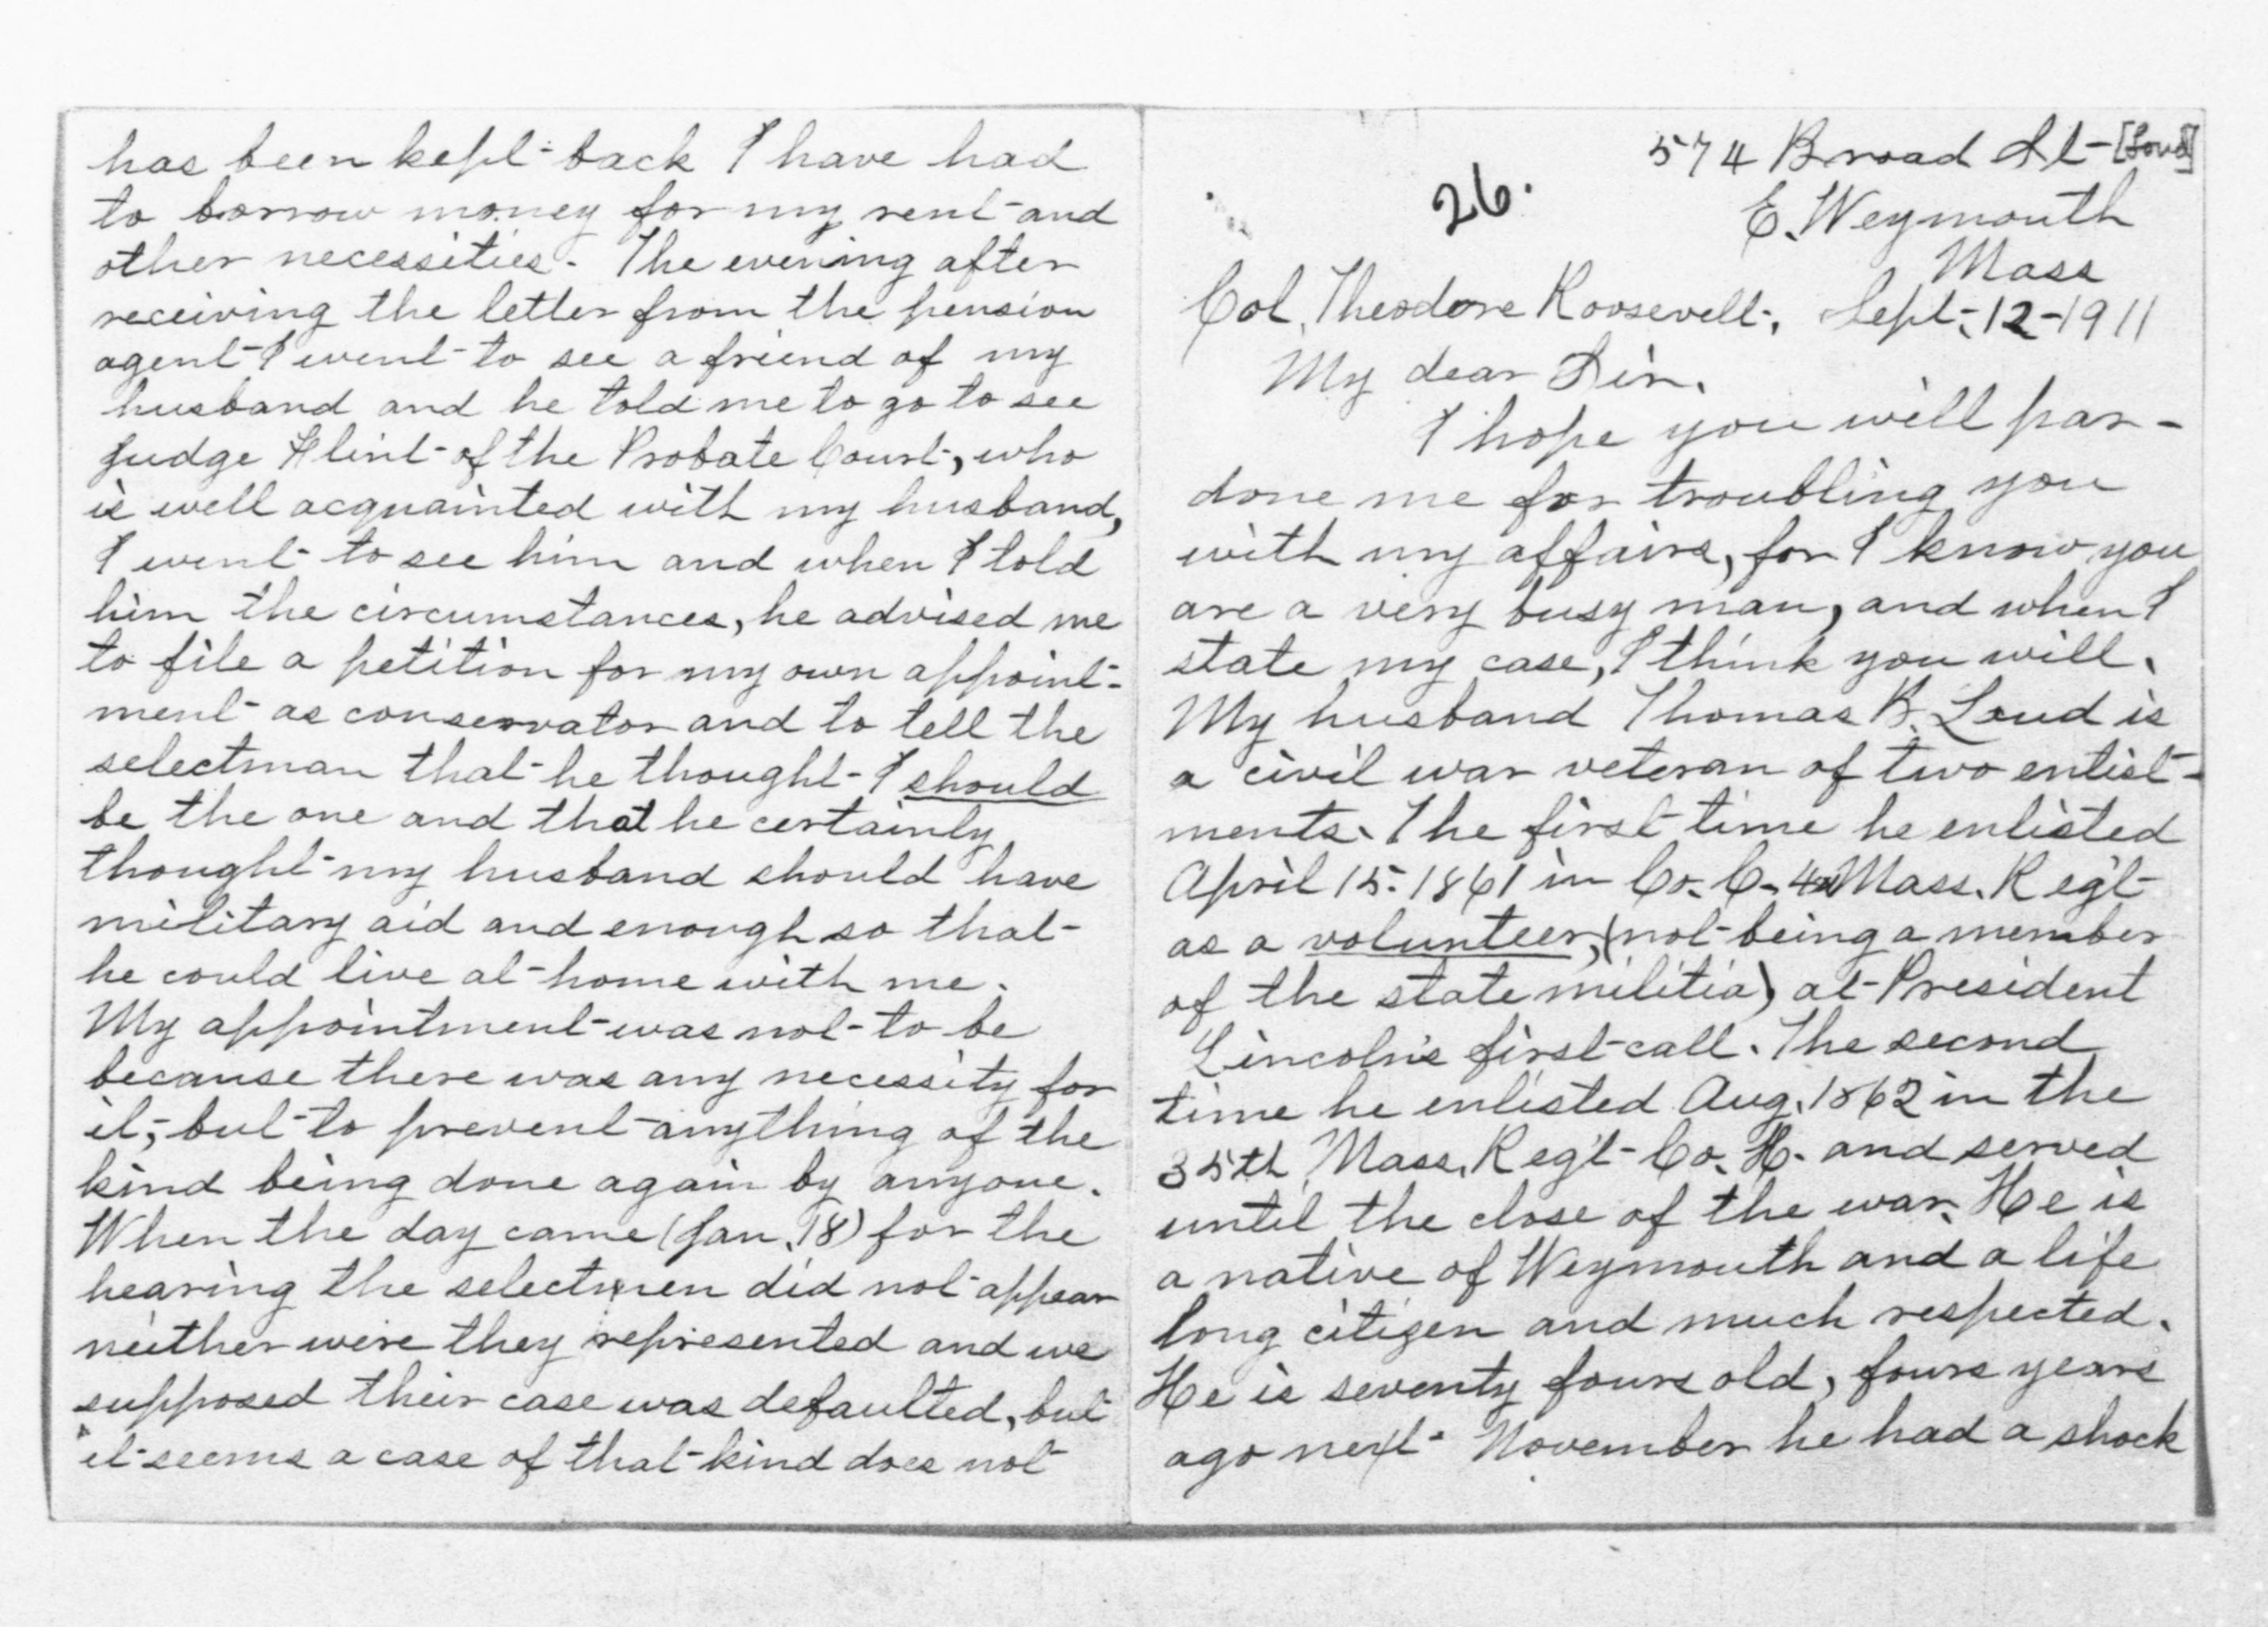 has been kept back I have had
to borrow money for my rent and
other necessities. The evening after
receiving the letter from the pension
agent I went to see a friend of my
husband and he told me to go to see
Judge Flint of the Probate Court, who
is well acquainted with my husband,
I went to see him and when I told
him the circumstances, he advised me
to file a petition for my own appoint-
ment as conservator and to tell the
selectman that he thought I should
be the one and that he certainly
thought my husband should have
military aid and enough so that
he could live at home with me.
My appointment was not to be
because there was any necessity for
it, but to prevent anything of the
kind being done again by anyone.
When the day came (Jan. 18) for the
hearing the selectmen did not appear
neither were they represented and we
supposed their case was defaulted, but
it seems a case of that kind does not
574 Broad St [Loud]
26.
E. Weymouth
Mass
Col. Theodore Roosevelt, Sept. 12-1911
My dear Sir.
I hope you will par-
done me for troubling you
with my affairs, for I know you
are a very busy man, and when I
state my case, I think you will.
My husband Thomas B. Loud is
a civil war veteran of two enlist-
ments. The first time he enlisted
April 15. 1861 in Co. C. Mass. Reg't
as a volunteer, (not being a member
of the state militia) at President
Lincoln's first call. The second
time he enlisted Aug. 1862 in the
35th Mass. Reg't Co. H. and served
until the close of the war. He is
a native of Weymouth and a life
long citizen and much respected.
He is seventy foure old, foure years
ago next November he had a shock